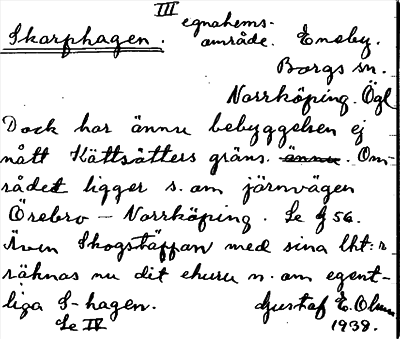 III
Skarphagen. egnahems-
område. Eneby.
Borgs sn.
Norrköping. Ögl
Dock har ännu bebyggelsen ej
nått Kättsätters gräns. ännu. Om-
rådet ligger s. om järnvägen
Örebro – Norrköping. Se f 56.
Även Skogstäppan med sina lht:r
räknas nu dit ehuru n. om egent-
liga S-hagen. Gustaf E. Olsson
Se IV 1938.